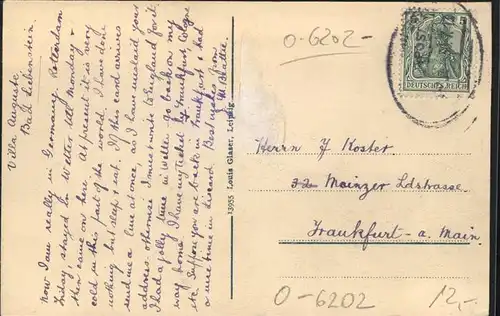 Villa Auguste
Bad Liebenstein.
Now I am really in Germany. Rotterdam
Friday, stayed in Wetter till Monday &
then came on here. At present it is very
cold in this part of the world. I do
nothing but sleep & eat. If this card arrives
send me a line at once, as I have mislaid your
address – otherwise I must write to England for it.
I had a jolly time in Wetter & go back on my
way home. I have my ticket by Frankfurt, Cologne
etc. Suppose you are back in Frankfurt, & had
a nice time in Best wishes from
M. Beattie.
13955 Louis Glaser, Leipzig
0-6202-
DEUTSCHES REICH
Herrn J Koster
32 Mainzer Ldstrasse
Frankfurt-a. Main.
0-6202
12,-